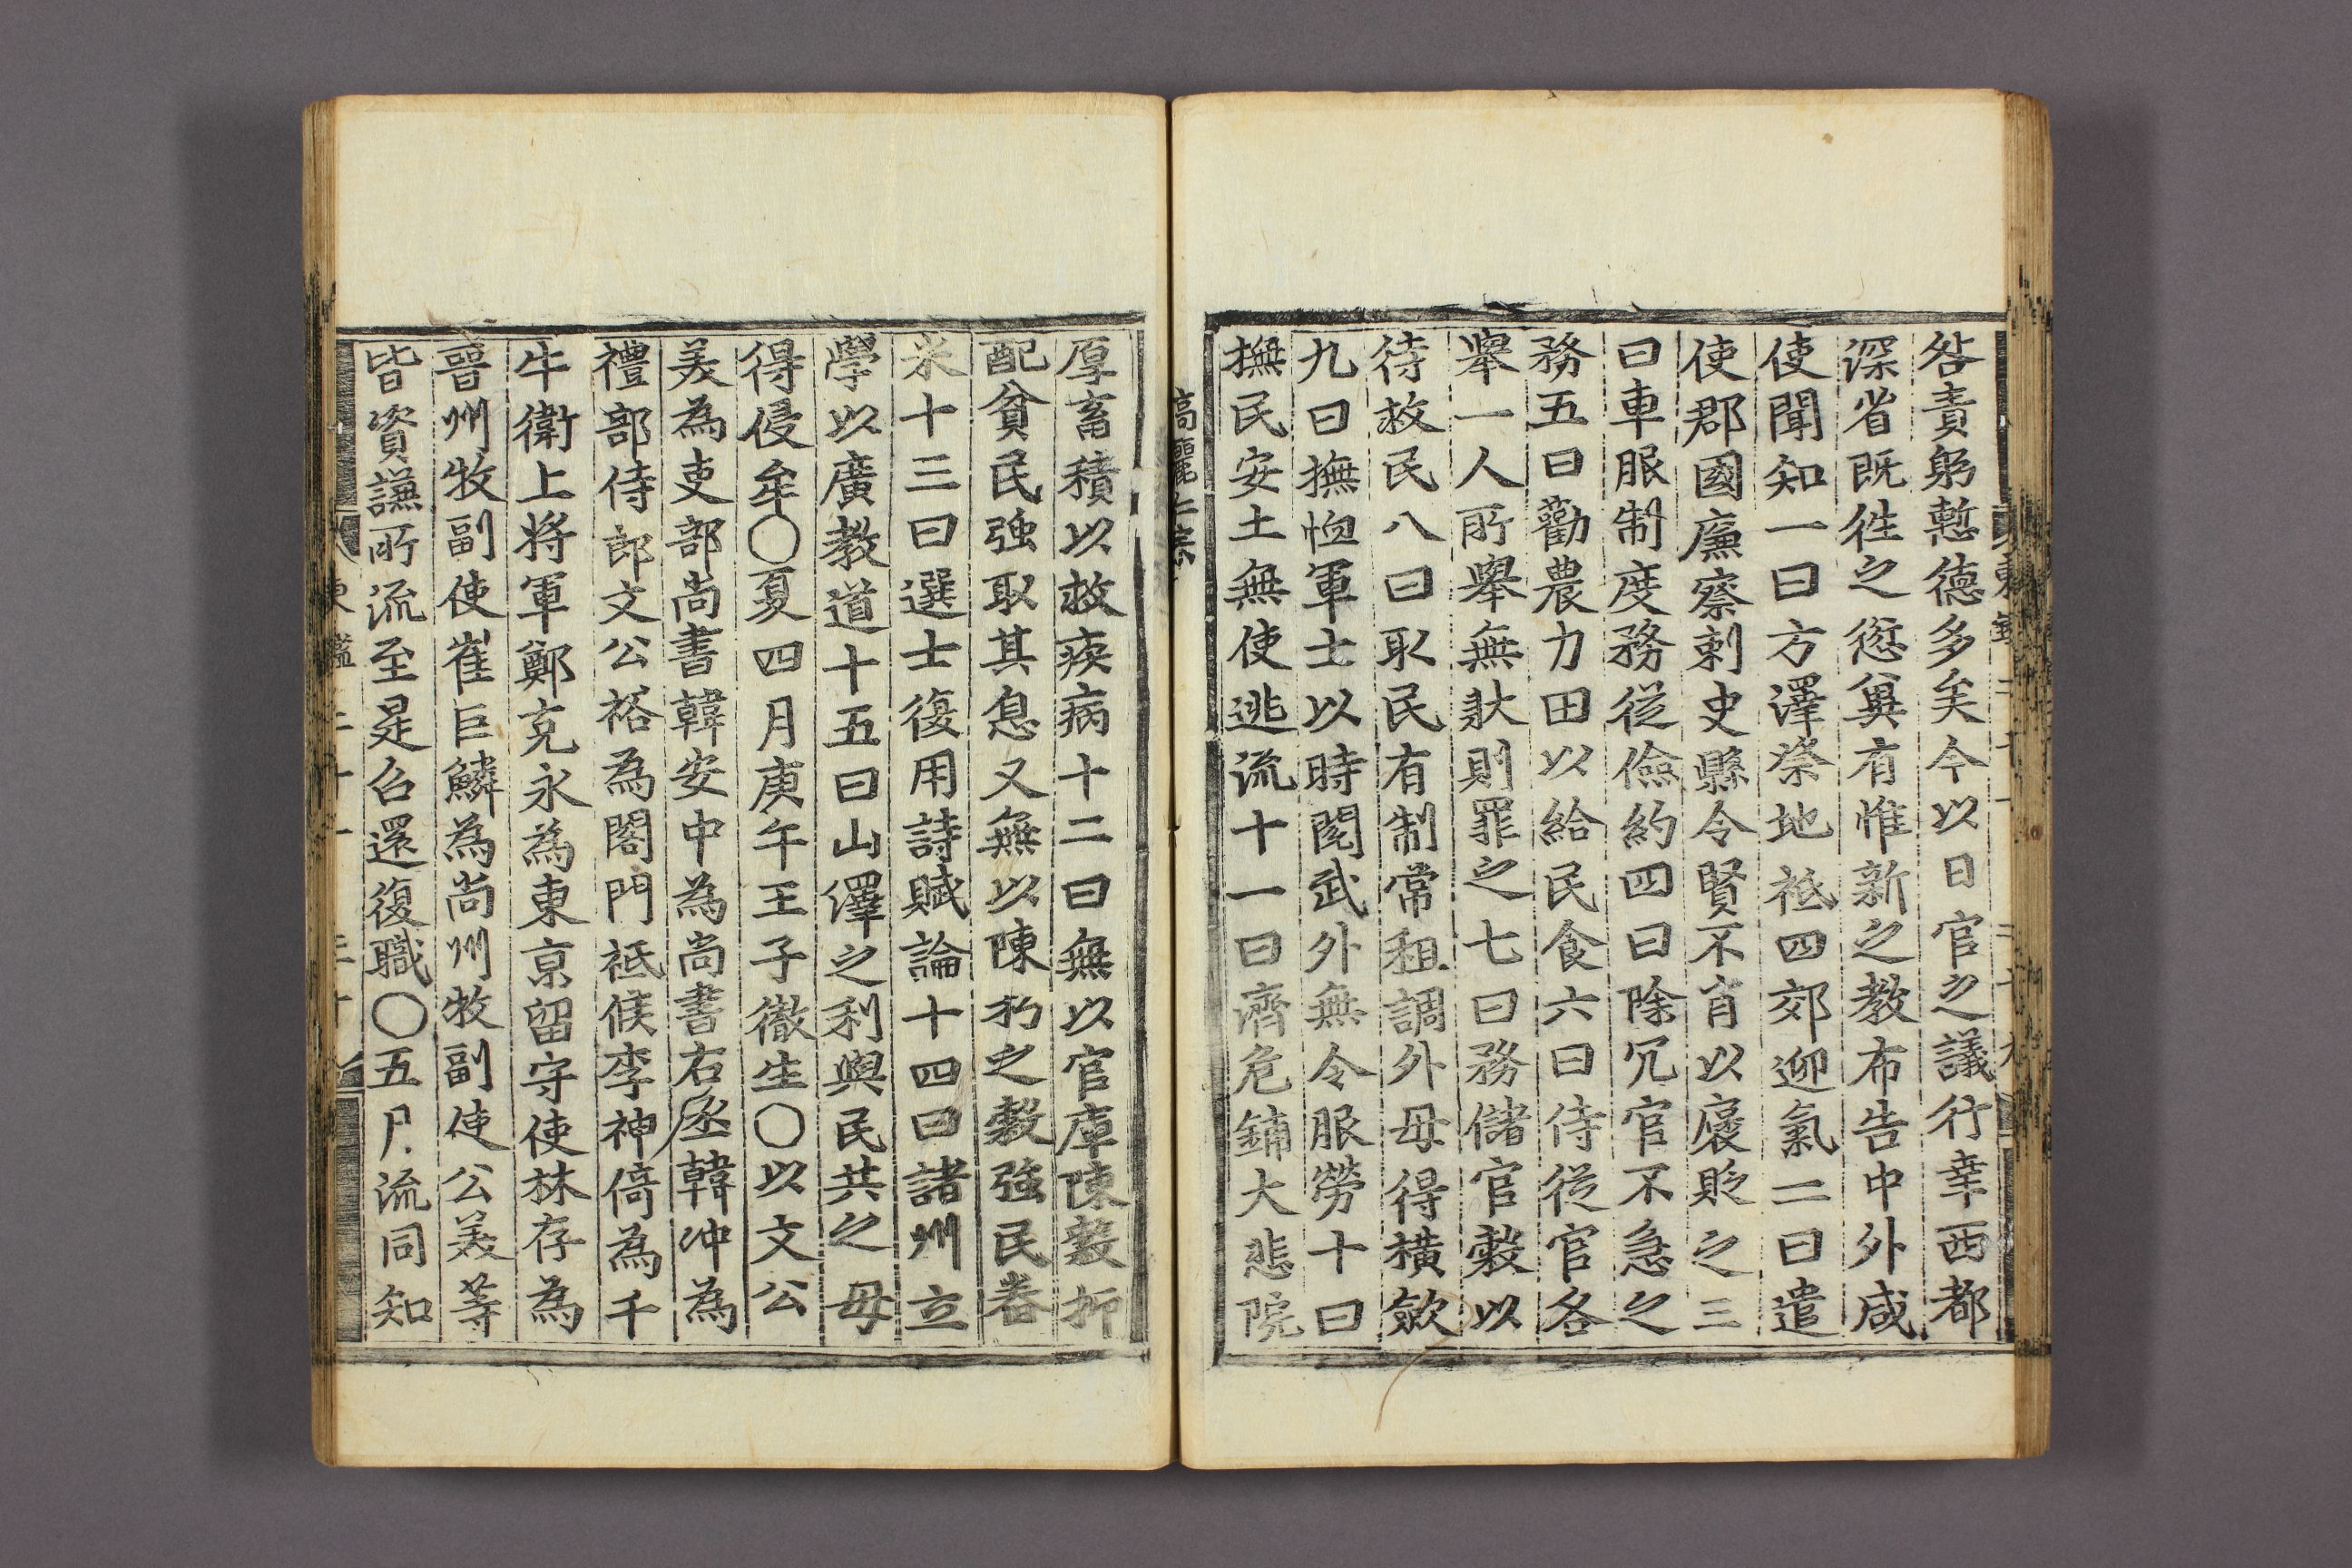 咎責躬慙德多矣今以日官之議行幸西都
深省既徃之愆兾有惟新之教布告中外咸
使聞知一曰方澤祭地祗四郊迎氣二曰遣
使郡國廉察刺史縣令賢不肖以褒貶之三
曰車服制度務從儉約四曰除冗官不急之
務五曰勸農力田以給民食六曰侍從官各
舉一人所舉無狀則罪之七曰務儲官糓以
待救民八曰取民有制常租調外毋得橫斂
九曰撫恤軍士以時閱武外無令服勞十曰
撫民安土無使逃流十一曰濟危鋪大悲院
高麗仁宗
厚畜積以救疾病十二曰無以官庫陳糓抑
配貧民強取其息又無以陳朽之糓強民舂
米十三曰選士復用詩賦論十四曰諸州立
學以廣教道十五曰山澤之利與民共之毋
得侵牟〇夏四月庚午王子徹生〇以文公
美為吏部尚書韓安中為尚書右丞韓冲為
禮部侍郎文公裕為閤門祗候李神倚為千
牛衛上將軍鄭克永為東京留守使林存為
晉州牧副使崔巨鱗為尚州牧副使公美等
皆資謙所流至是召還復職〇五月流同知
東鑑二十一